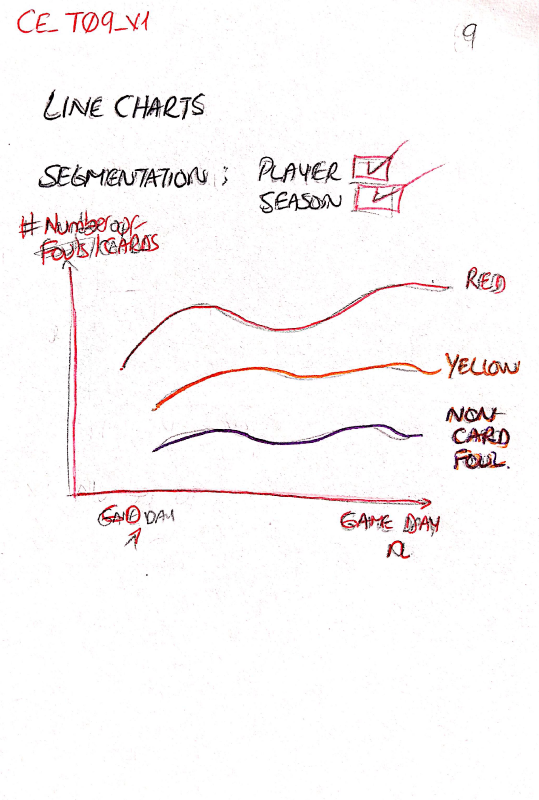 CE_TØ9_V1
9
LINE CHARTS
SEGMENTATION : PLAYER
SEASON
# Number of
Fouls/CARDS
RED
YELLOW
NON-
CARD
FOUL.
DAY
GAME DAY
n